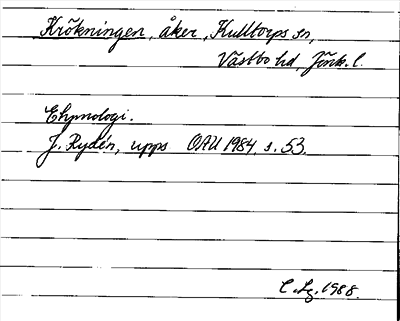 Krökningen, åker, Kulltorps sn,
Västbo hd, Jönk. l.
Etymologi.
J. Rydén, upps OAU 1984, s. 53.
C. Lg. 1988.